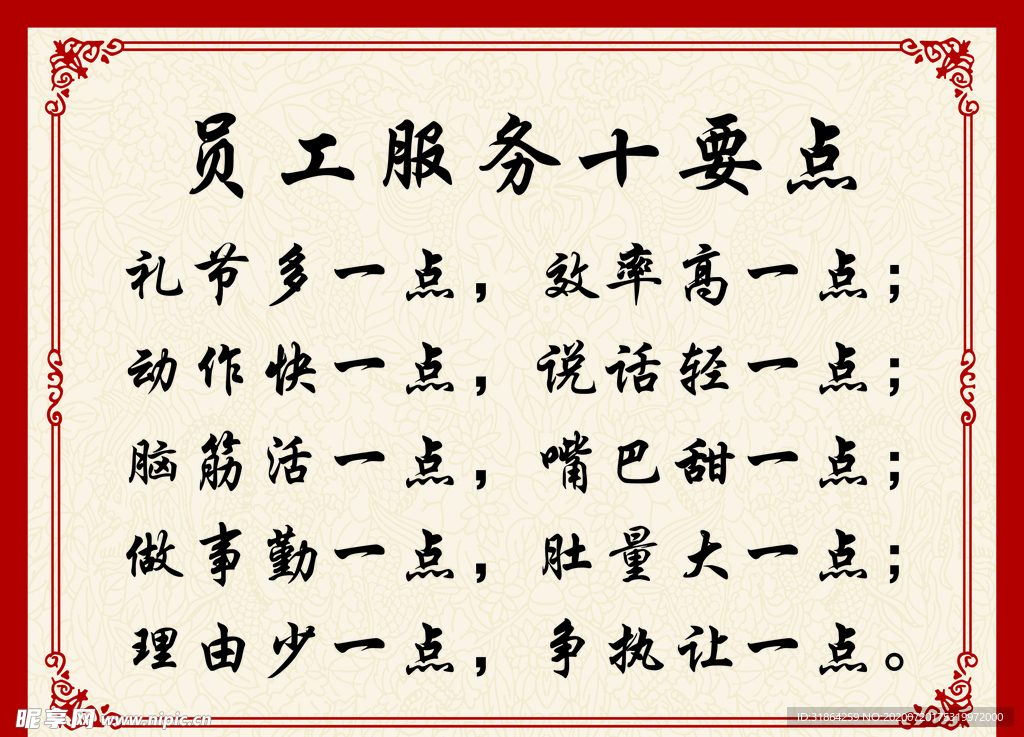 员工服务十要点
礼节多一点，效率高一点；
动作快一点，说话轻一点；
脑筋活一点，嘴巴甜一点；
做事勤一点，肚量大一点；
理由少一点，争执让一点。
昵享网 www.nipic.cn
ID:31864259 NO:20200720175319972000